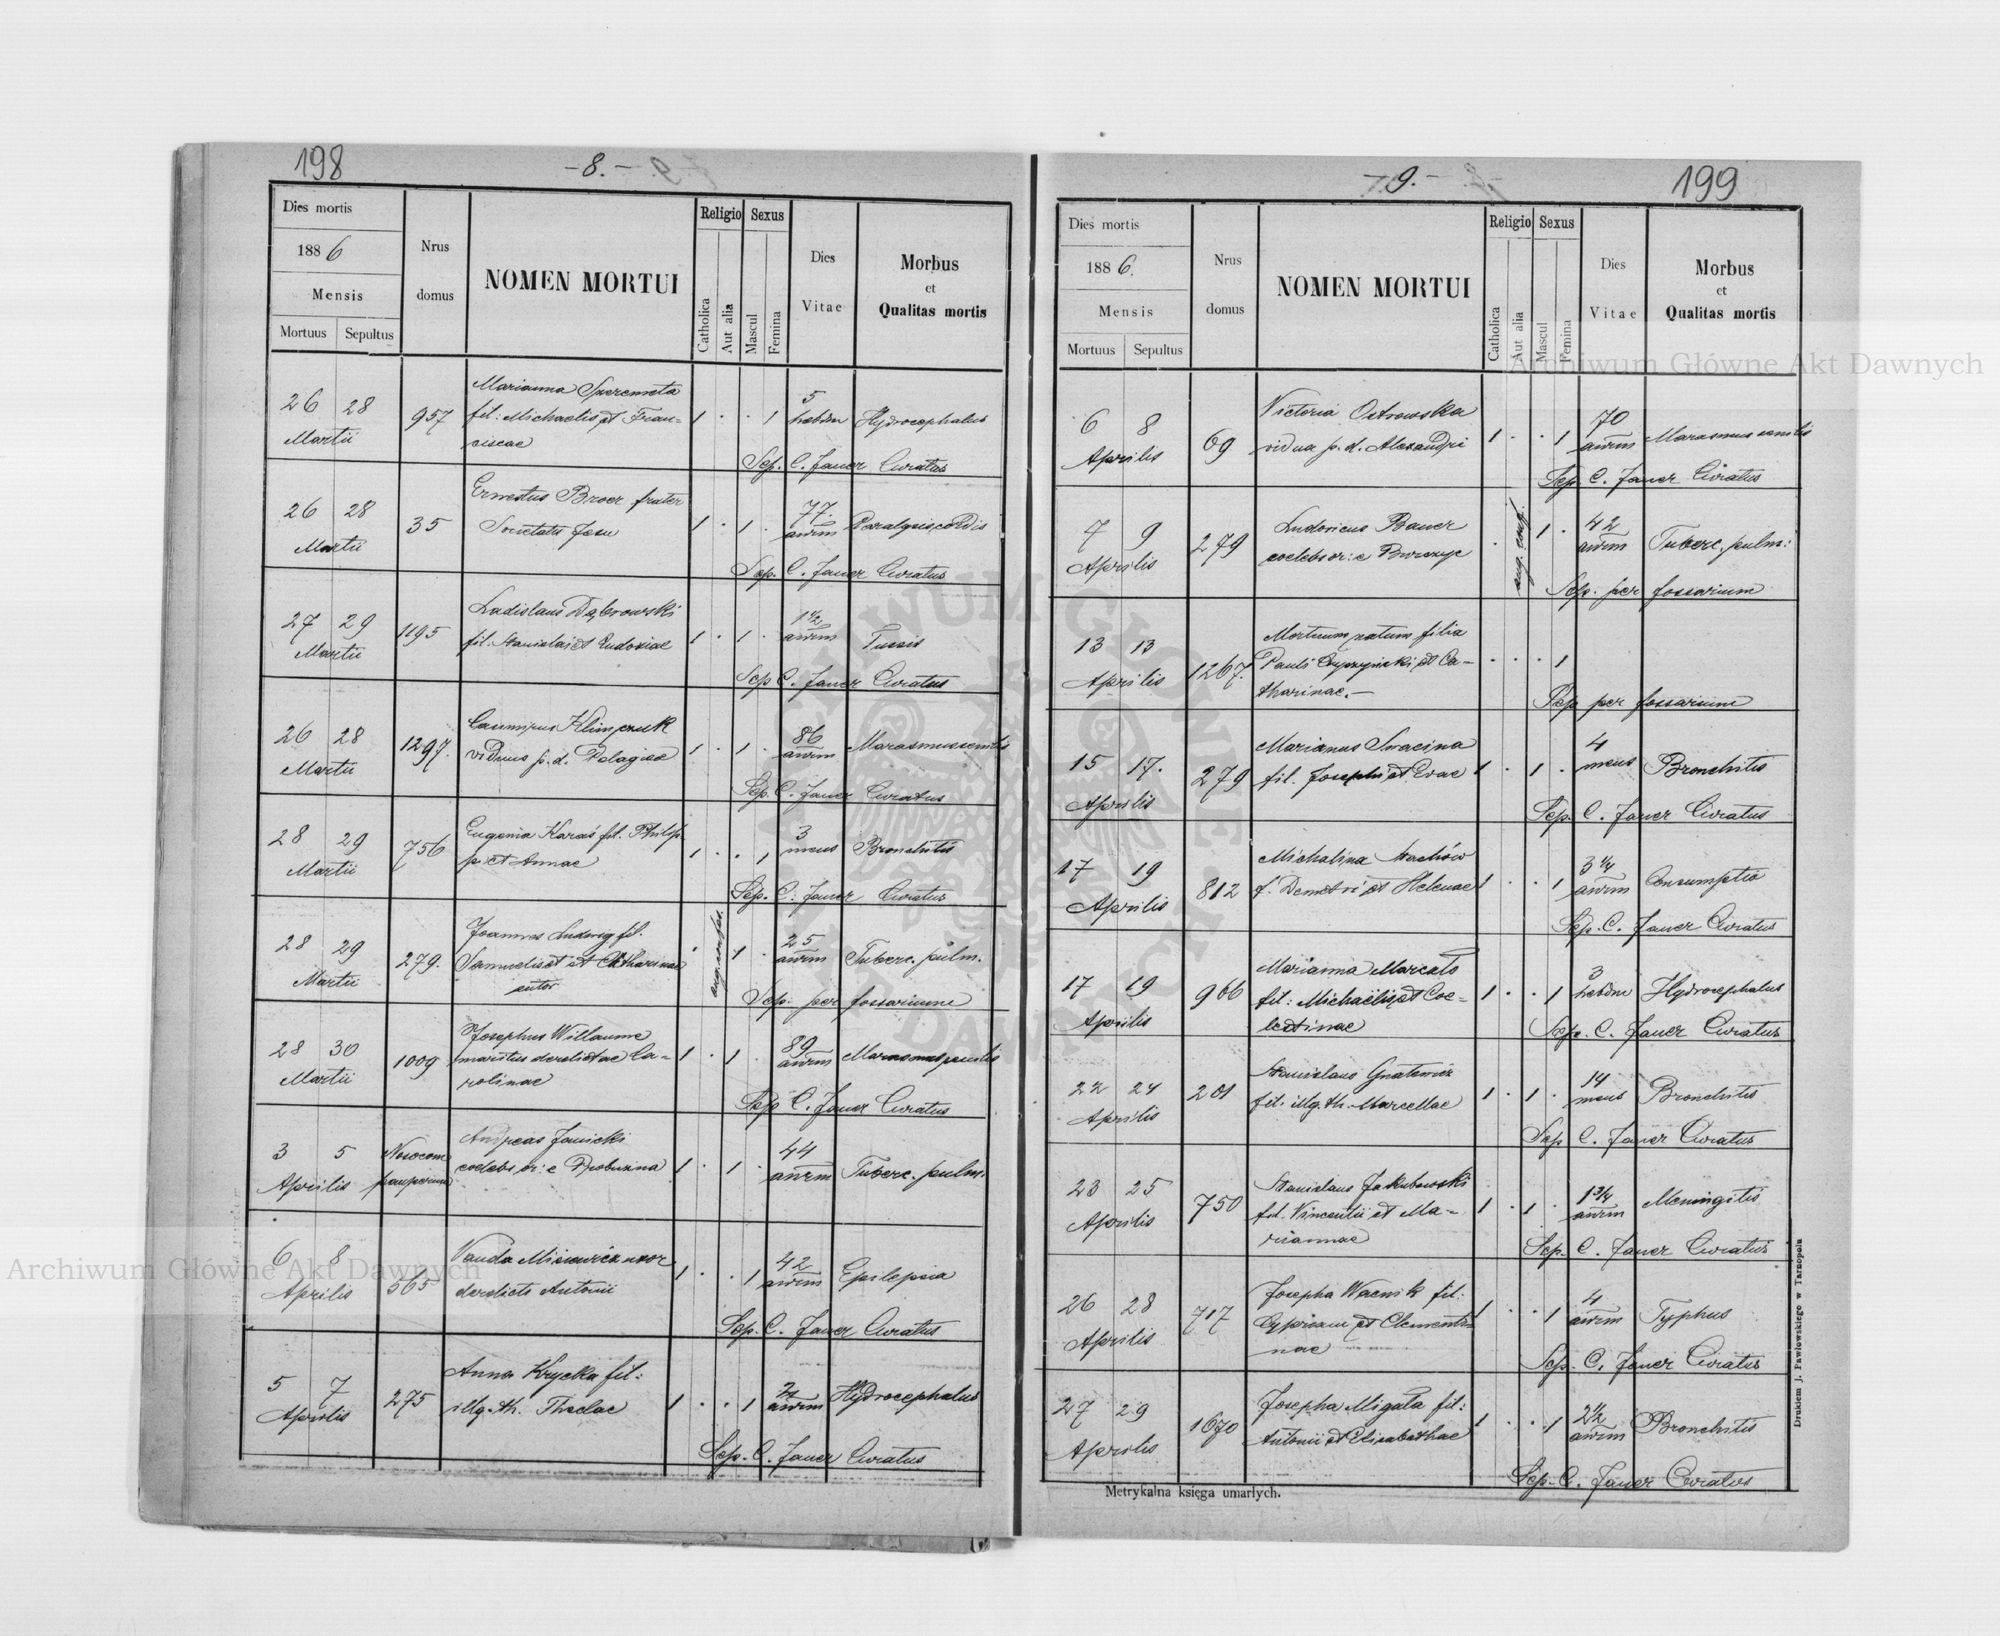 198
-8.-
Dies mortis
1886
Mensis
Mortuus Sepultus
Nrus
domus
NOMEN MORTUI
Religio
Catholica
Aut alia
Sexus
Mascul
Femina
Dies
Vitae
Morbus
et
Qualitas mortis
Marianna
26 28 957 fil: Michaelis et Fran= 1 . . 1 5 hebdm Hydrocephalus
Martii ciscae
Sep. C. Jauer Curatus
Ernestus Broer frater
26 28 35 Societatis Jesu 1 . 1 . 77. annrm Paralysis cordis
Martii
Sep. C. Jauer Curatus
Ladislaus Dąbrowski
27 29 1195 fil. Stanislai et Eudoxiae 1 . 1 . 1 1/2 annrm Tussis
Martii
Sep C. Jauer Curatus
Casimirus Klimczuk
26 28 1297. viduus p. d. Pelagiae 1 . 1 . 86 annrm Marasmus senilis
Martii
Sep. C. Jauer Curatus
Eugenia Karaś fil. Philip
28 29 756 pi et Annae 1 . . 1 3 mens Bronchitis
Martii
Sep. C. Jauer Curatus
Joannes Ludwig fil.
28 29 279. Samuelis et Catharinae aug. confes. 1 . 25 annrm Tuberc. pulm.
Martii sutor
Sep. per fossarium
Josephus Willaume
28 30 1009 maritus derelictae Ca= 1 . 1 . 89 annrm Marasmus senilis
Martii rolinae
Sep C. Jauer Curatus
Andreas Janicki
3 5 Nosocom pauperum coelebs or: e Probuzna 1 . 1 . 44 annrm Tuberc. pulm.
Aprilis
Vanda Misiewicz uxor
6 8 565 derelicti Antonii 1 . . 1 42 annrm Epilepsia
Aprilis
Sep. C. Jauer Curatus
Anna Krycka fil:
5 7 275 illg. th. Theclae 1 . . 1 2 annrm Hydrocephalus
Aprilis
Sep. C. Jauer Curatus
-9.-
199
Dies mortis
1886.
Mensis
Mortuus Sepultus
Nrus
domus
NOMEN MORTUI
Religio
Catholica
Aut alia
Sexus
Mascul
Femina
Dies
Vitae
Morbus
et
Qualitas mortis
Victoria Ostrowska
6 8 69 vidua p. d. Alexandri 1 . . 1 70 annrm Marasmus senilis
Aprilis
Sep. C. Jauer Curatus
Ludovicus Bauer
7 9 279 coelebs or: e . aug. conf. 1 . 42 annrm Tuberc. pulm:
Aprilis
Sep. per fossarium
Mortuum natum filia
13 13 1267. Pauli et Ca= . . . 1
Aprilis tharinae.—
Sep per fossarium
Marianus Swacina
15 17. 279 fil. Josephi et Evae 1 . 1 . 4 mens Bronchitis
Aprilis
Sep. C. Jauer Curatus
Michalina Stachów
17 19 812 f. Demetri et Helenae 1 . . 1 3 1/4 annrm Consumptio
Aprilis
Sep. C. Jauer Curatus
Marianna Marcało
17 19 966 fil: Michaëlis et Coe= 1 . . 1 3 hebdm Hydrocephalus
Aprilis lestinae
Sep. C. Jauer Curatus
Stanislaus Gnatewicz
22 24 201 fil. illg. th. Marcellae 1 . 1 . 14 mens Bronchitis
Aprilis
Sep C. Jauer Curatus
Stanislaus Jakubowski
23 25 750 fil. Vincentii et Ma= 1 . 1 . 1 3/4 annrm Meningitis
Aprilis riannae
Sep. C. Jauer Curatus
Josepha Wacnik fil:
26 28 717 Cypriani et Clementi= 1 . . 1 4 annrm Typhus
Aprilis nae
Sep. C. Jauer Curatus
Josepha Migała fil:
27 29 1670 Antonii et Elisabethae 1 . . 1 2 1/2 annrm Bronchitis
Aprilis
Sep. C. Jauer Curatus
Metrykalna księga umarłych.
Drukiem J. Pawłowskiego w Tarnopolu
Archiwum Główne Akt Dawnych
Archiwum Główne Akt Dawnych
ARCHIWUM GŁÓWNE AKT DAWNYCH